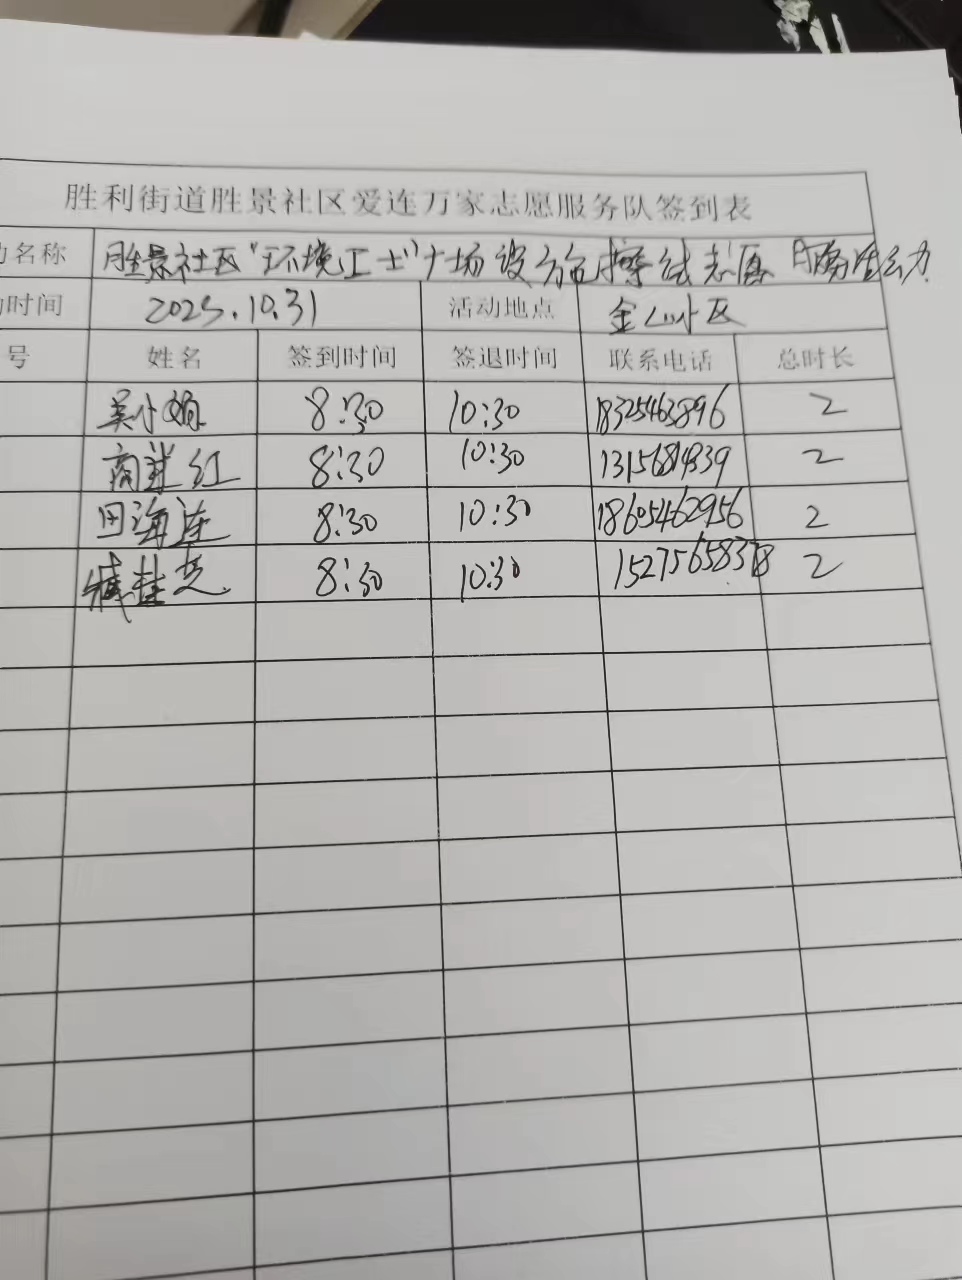 胜利街道胜景社区爱连万家志愿服务队签到表
名称 胜景社区“环境卫士”广场设施擦拭志愿服务活动
时间 2025.10.31 活动地点 金山小区
号 姓名 签到时间 签退时间 联系电话 总时长
吴小娟 8:30 10:30 18325463896 2
商 红 8:30 10:30 2
田海连 8:30 10:30 18605462956 2
臧桂芝 8:30 10:30 15275658378 2